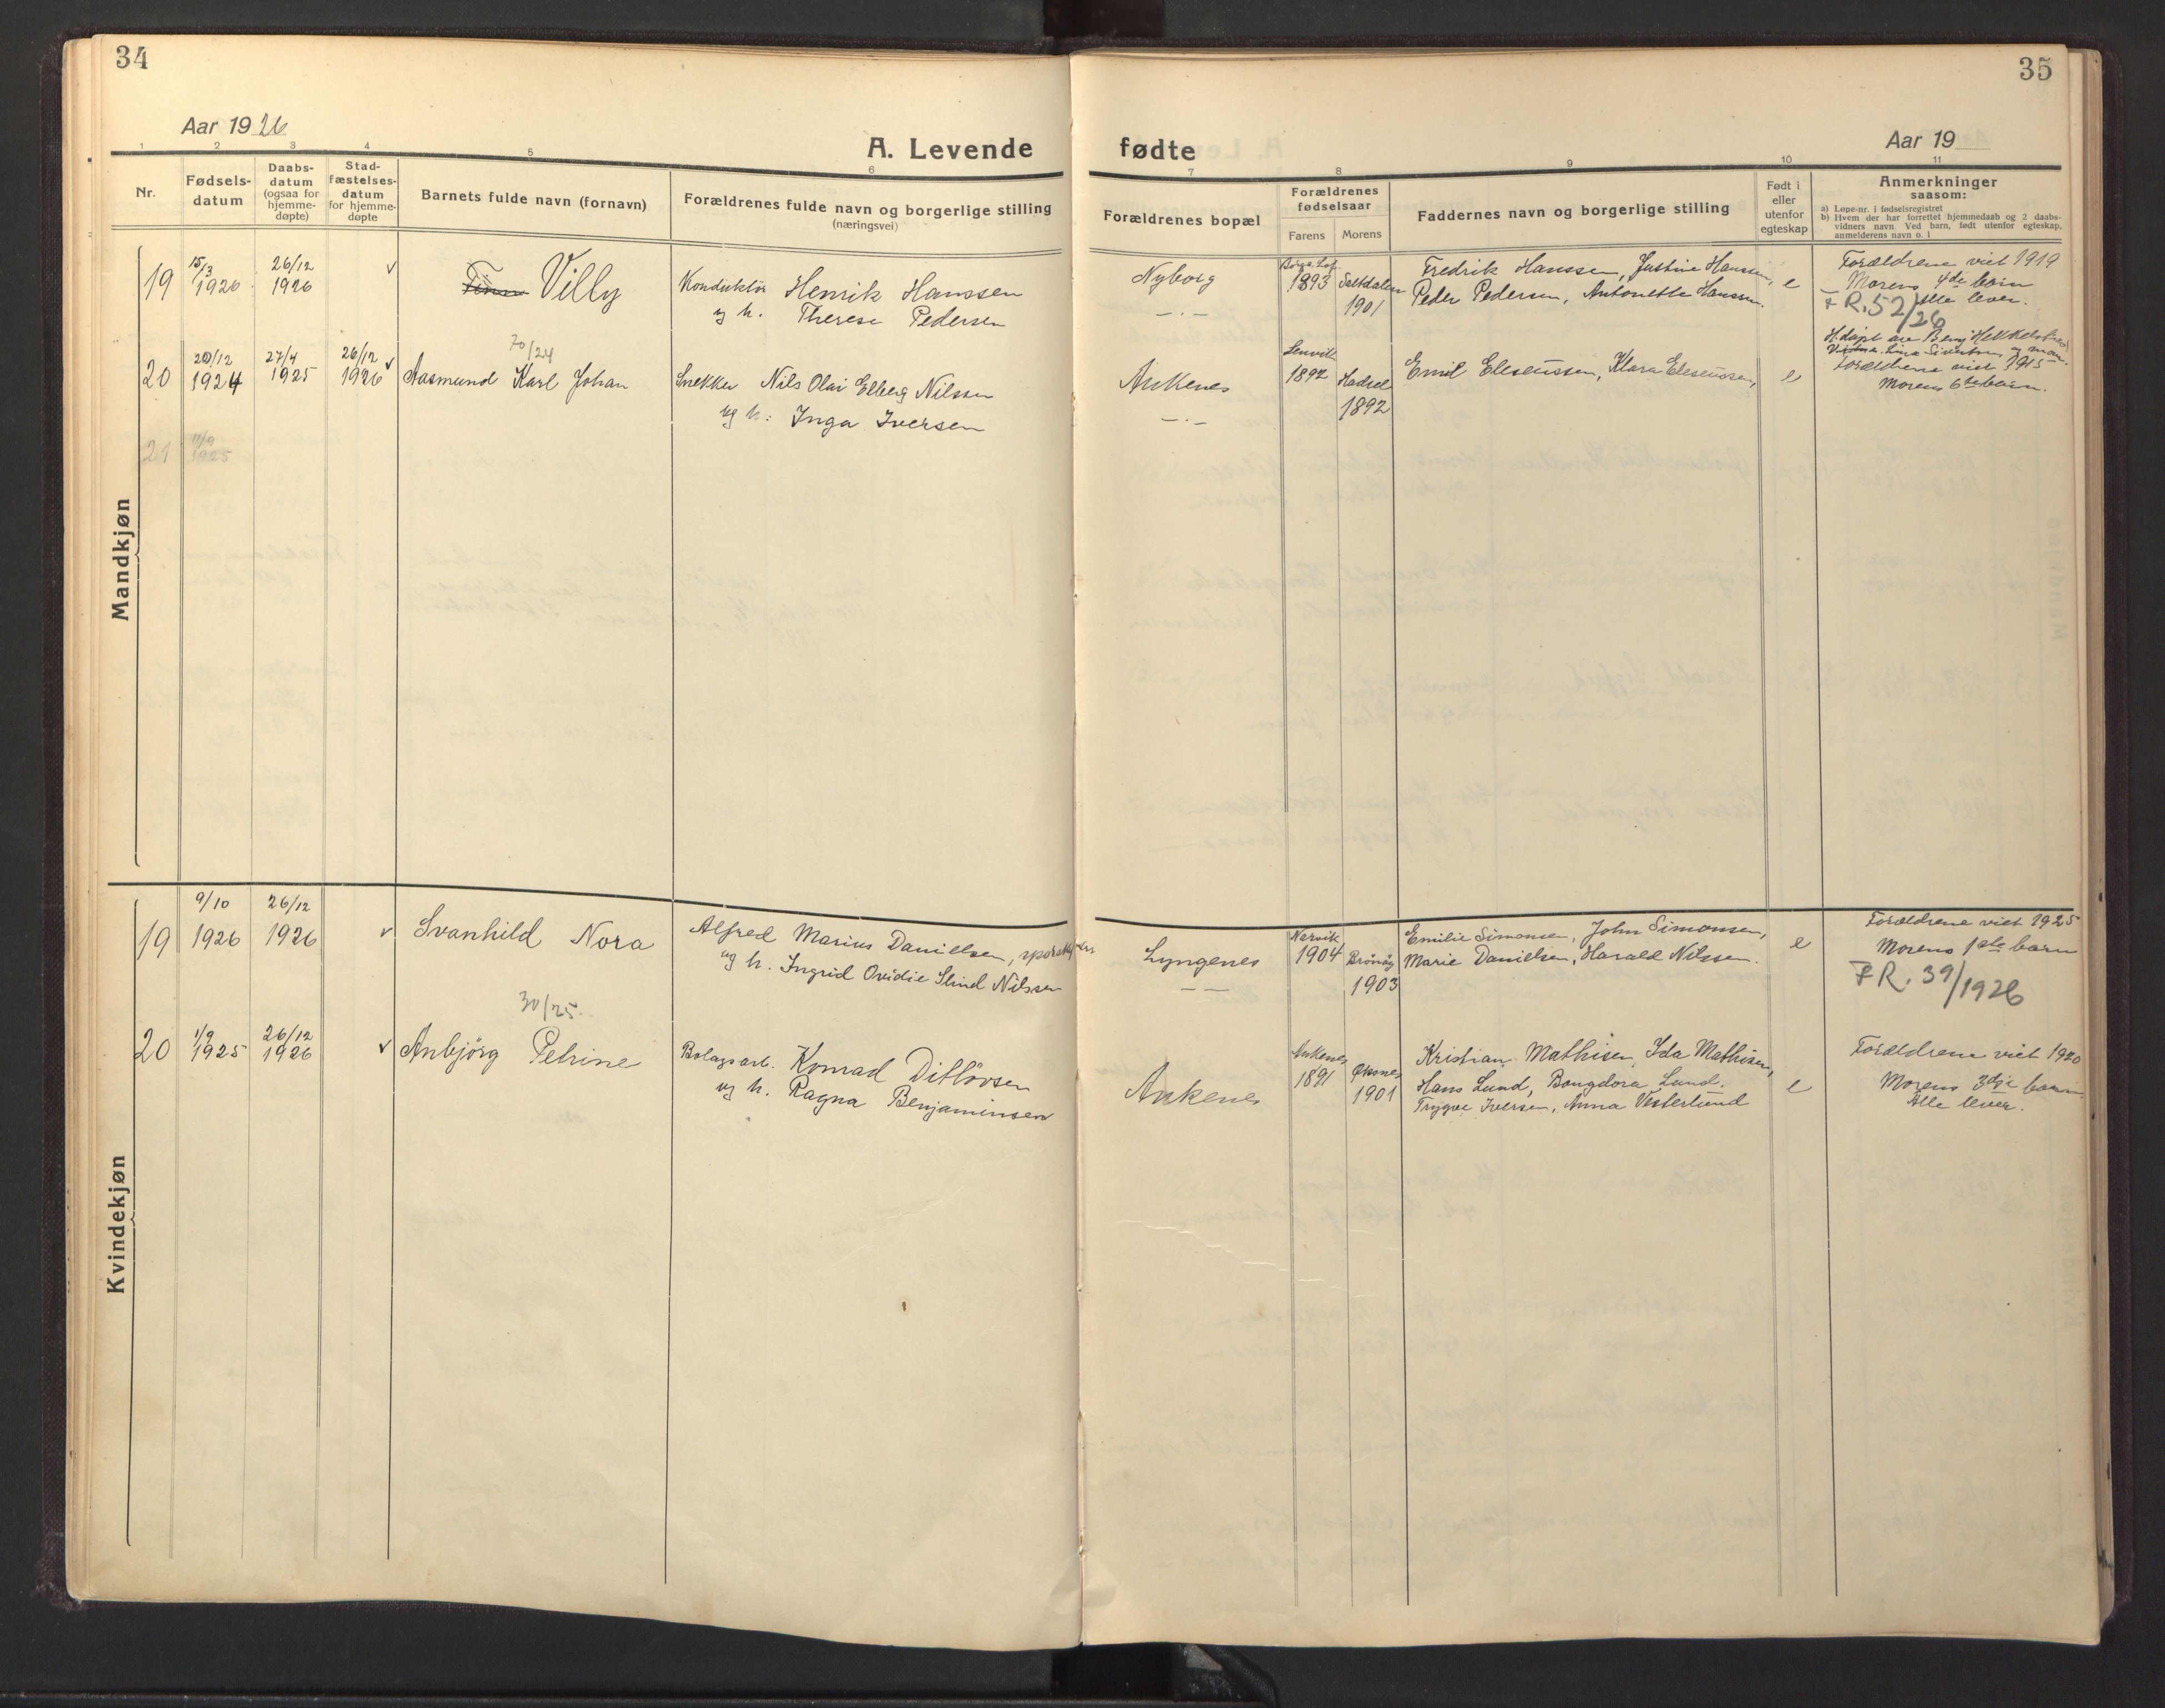 34
35
Aar 1926
A. Levende
fødte
Aar 19
1 2 3 4 5 6 7 8 9 10 11
Nr.
Fødsels-
datum
Daabs-
datum
(ogsaa for
hjemme-
døpte)
Stad-
fæstelses-
datum
for hjemme-
døpte
Barnets fulde navn (fornavn)
Forældrenes fulde navn og borgerlige stilling
(næringsvei)
Forældrenes bopæl
Forældrenes
fødselsaar
Farens Morens
Faddernes navn og borgerlige stilling
Født i
eller
utenfor
egteskap
Anmerkninger
saasom:
a) Løpe-nr. i fødselsregistret
b) Hvem der har forrettet hjemmedaab og 2 daabs-
vidners navn. Ved barn, født utenfor egteskap,
anmelderens navn o. l
Mandkjøn
19
15/3
1926
26/12
1926
Villy
Konduktør Henrik Hanssen
og h. Therese Pedersen
Nyborg
1893
Saltdalen
1901
Fredrik Hanssen, Justine Hanssen,
Peder Pedersen, Antonette Hanssen.
e
Forældrene viet 1919
Morens 4de barn
Alle lever.
F R. 52/26
20
20/12
1924
27/4
1925
26/12
1926
70/24
Aasmund Karl Johan
Snekker Nils Olai Elberg Nilssen
og h: Inga Iversen
Ankenes
Lenvik
1892
Hadsel
1892
Emil Eleseussen, Klara Eleseussen,
e
H.døpt av
Forældrene viet 1915
Morens 6te barn.
21
11/9
1925
Kvindekjøn
19
9/10
1926
26/12
1926
Svanhild Nora
Alfred Marius Daniellsen,
og h. Ingrid Ovidie Slind Nilssen
Lyngenes
Narvik
1904
Brønøy
1903
Emilie Simonsen, John Simonsen,
Marie Danielsen, Harald Nilssen.
e
Forældrene viet 1925
Morens 1ste barn
F R. 39/1926
20
1/9
1925
26/12
1926
30/25
Anbjørg Petrine
Bolagsarb. Konrad Ditløvsen
og h. Ragna Benjaminsen
Ankenes
Ankenes
1891
Øksnes
1901
Kristian Mathisen, Ida Mathisen,
Hans Lund, Bongdora Lund.
Trygve Iversen, Anna Vesterlund
e
Forældrene viet 1920
Morens 3dje barn.
Alle lever.